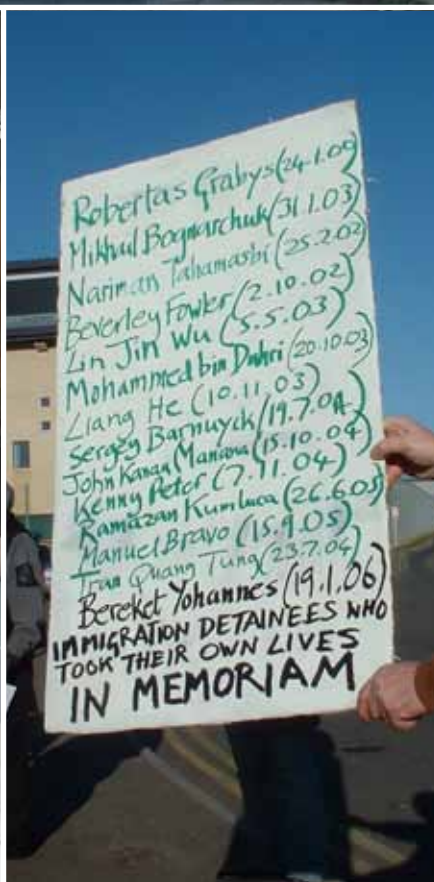 Robertas Grabys (24.1.00)
Mikhul Bognarchuk (31.1.03)
Nariman Tahamasbi (25.2.02)
Beverley Fowler (2.10.02)
Lin Jin Wu (5.5.03)
Mohammed bin Duhri (20.10.03)
Liang He (10.11.03)
Sergey Barnuyck (19.7.04)
John Kanau Manana (15.10.04)
Kenny Peter (7.11.04)
Ramazan Kumluca (26.6.05)
Manuel Bravo (15.9.05)
Tran Quang Tung (23.7.04)
Bereket Yohannes (19.1.06)
IMMIGRATION DETAINEES WHO
TOOK THEIR OWN LIVES
IN MEMORIAM